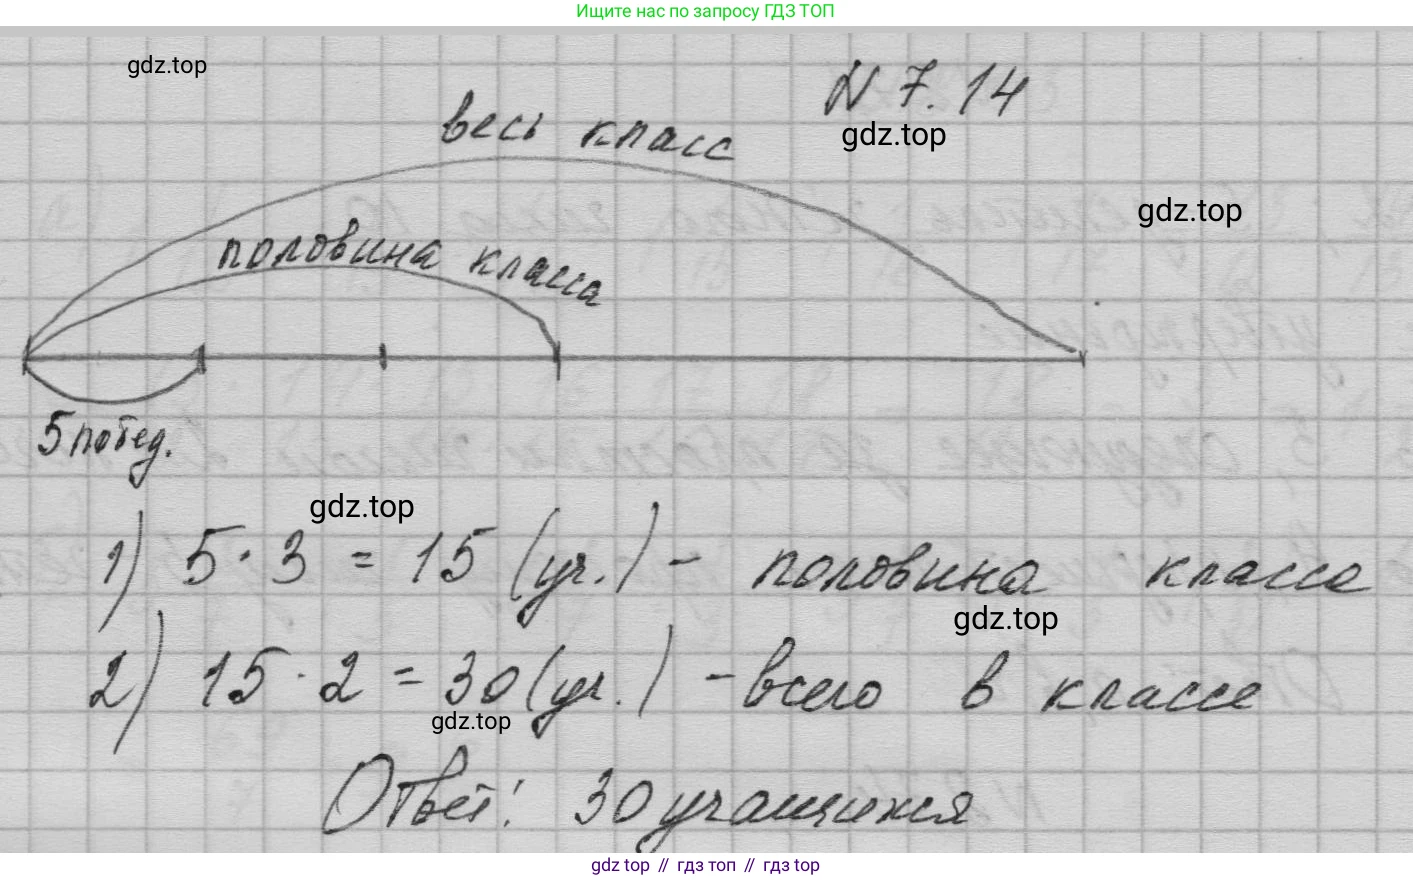 Ищите нас по запросу ГДЗ ТОП
gdz.top
N 7.14
gdz.top
весь класс
gdz.top
половина класса
5 побед.
gdz.top
1) 5 · 3 = 15 (уч.) - половина класса
gdz.top
2) 15 · 2 = 30 (уч.) - всего в классе
gdz.top
Ответ: 30 учащихся
gdz top // гдз топ // gdz top